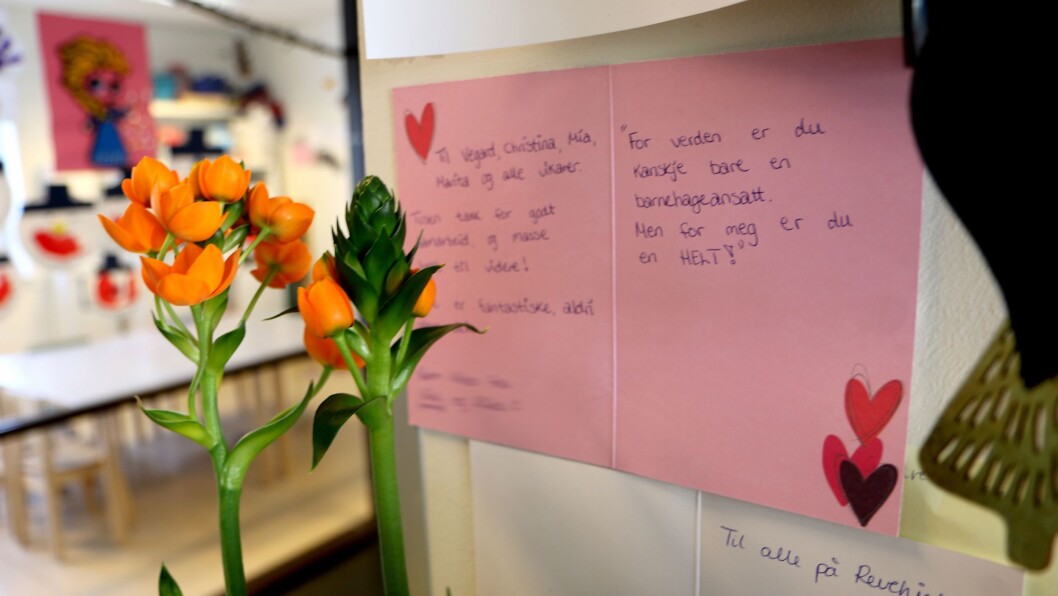 Til Vegard, Christina, Mia,
Marita og alle vikarer.
takk for godt
og masse
til videre!
er fantastiske, aldri
"For verden er du
kanskje bare en
barnehageansatt.
Men for meg er du
en HELT!"
Til alle på